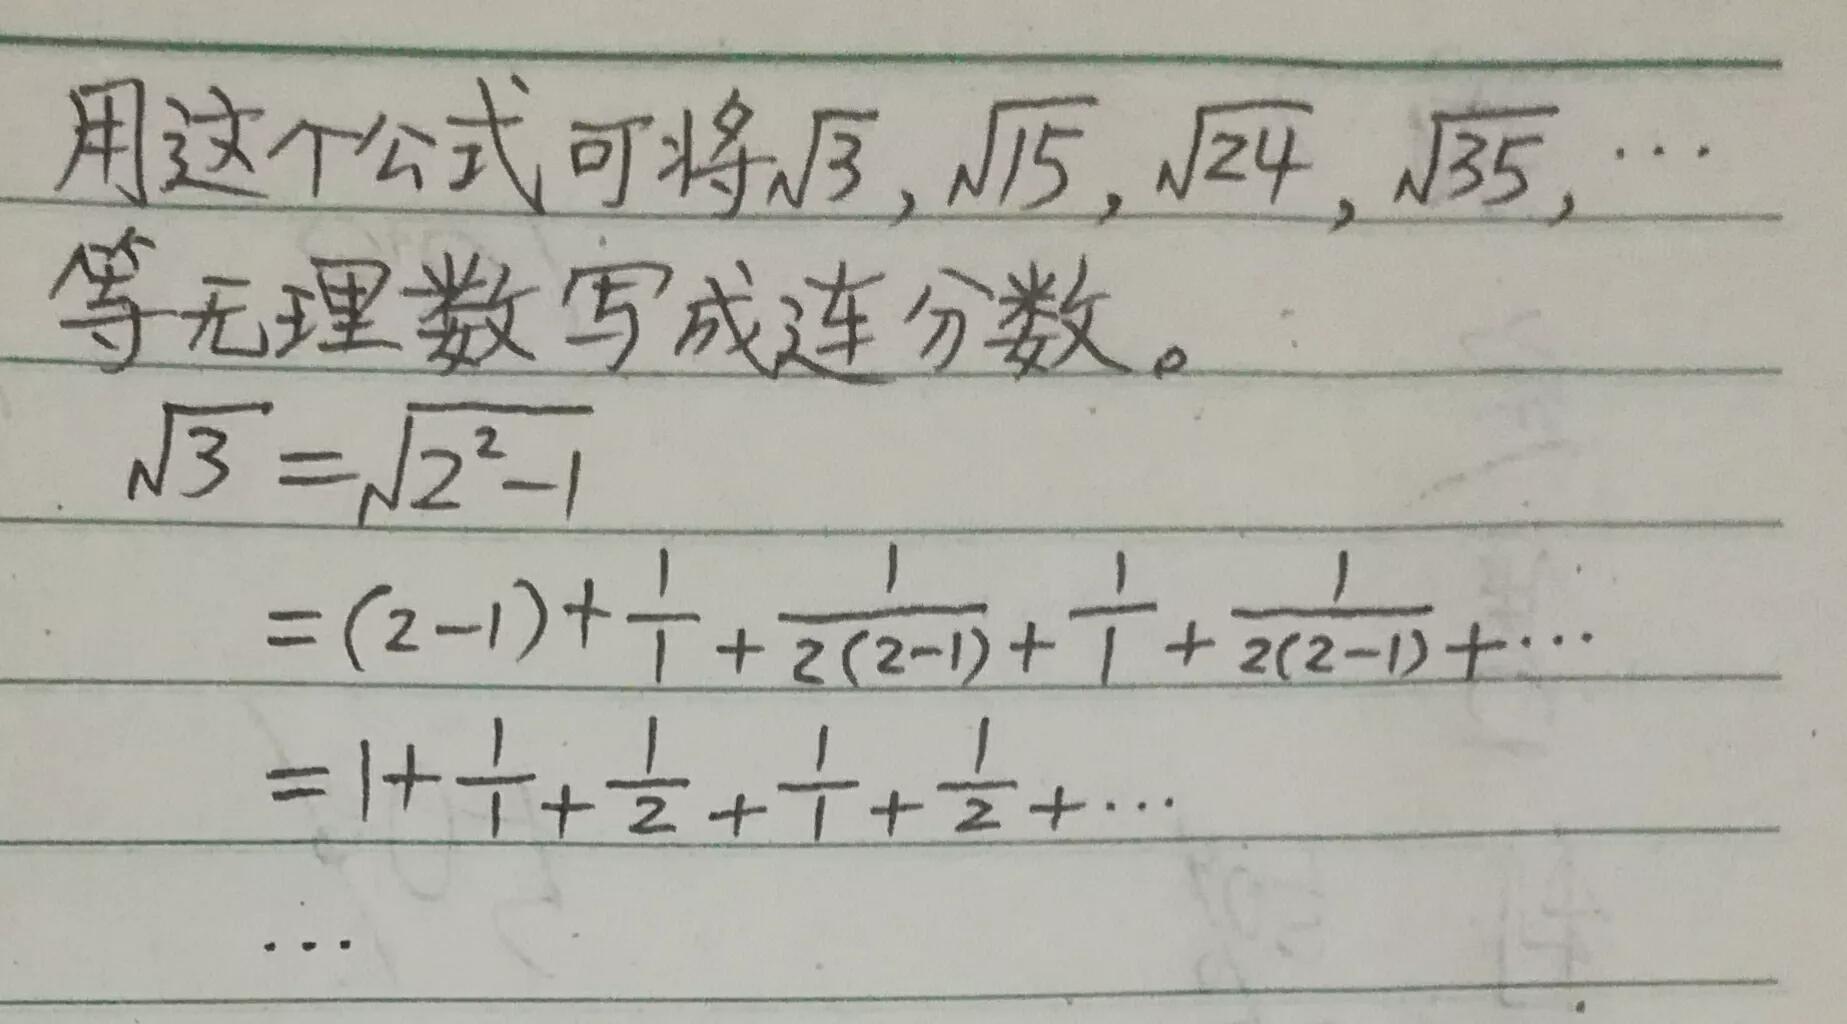 用这个公式可将√3, √15, √24, √35, ···
等无理数写成连分数。
√3 = √(2²-1)
= (2-1) + 1/1 + 1/2(2-1) + 1/1 + 1/2(2-1) + ···
= 1 + 1/1 + 1/2 + 1/1 + 1/2 + ···
···